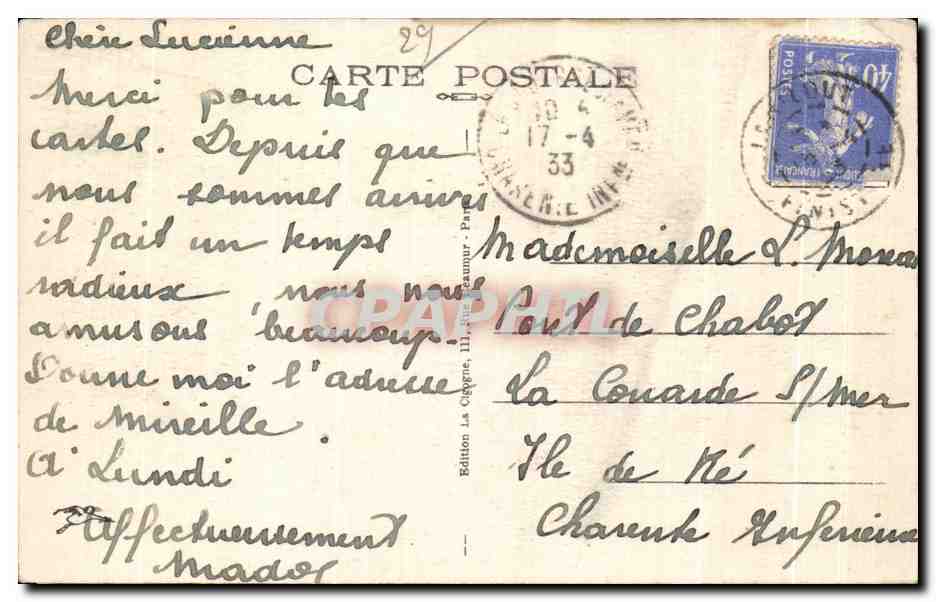 Chère Lucienne
29
CARTE POSTALE
Merci pour tes
cartes. Depuis que
nous sommes arrivés
il fait un temps
radieux, nous nous
amusons beaucoup.
Donne moi l'adresse
de Mireille.
A Lundi
Affectueusement
Mador
Edition La Cigogne, 111, Rue Réaumur - Paris
17 - 4
33
CHARENTE INFRE
40
POSTES
FINIST
Mademoiselle L. Moreau
Pont de Chabot
La Couarde S/Mer
Ile de Ré
Charente Inférieure
CPAPHIL